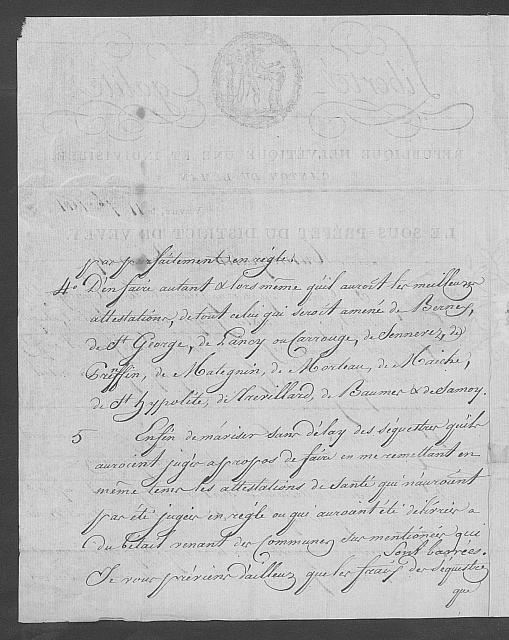 Liberté Egalité
RÉPUBLIQUE HELVÉTIQUE UNE ET INDIVISIBLE
CANTON DU LÉMAN
LE SOUS-PRÉFET DU DISTRICT DE VEVEY
pas parfaitement en règle.
4° D'en faire autant & lors même qu'il auroit les meilleures
attestations, de tout celui qui seroit amené de Bernex,
de St George, de Lancy ou Carrouge, de Jennerez, de
Griffin, de Malegnin, de Morteau, de Maiche,
de St hypolite, de Trevillard, de Baumes & de Samoy.
5 Enfin de m'aviser sans délay des séquestres qu'ils
auroient jugés apropos de faire en me remettant en
même tems les attestations de Santé qui n'auroient
pas été jugées en règle ou que auroint été délivrés a
du betail venant des Communes sus mentionées qui
sont barrées.
Je vous préviens d'ailleurs que les fraix des séquestre
que